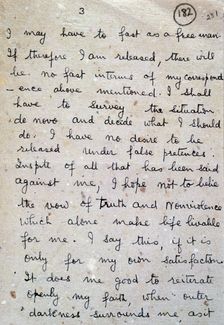 3
182
I may have to fast as a free man.
If therefore I am released, there will
be no fast in terms of my correspond
-ence above mentioned. I shall
have to survey the situation
de novo and decide what I should
do. I have no desire to be
released under false pretences.
Inspite of all that has been said
against me, I hope not to belie
the vow of truth and Nonviolence
which alone make life livable
for me. I say this, if it is
only for my own satisfaction.
It does me good to reiterate
openly my faith, when outer
darkness surrounds me, as it